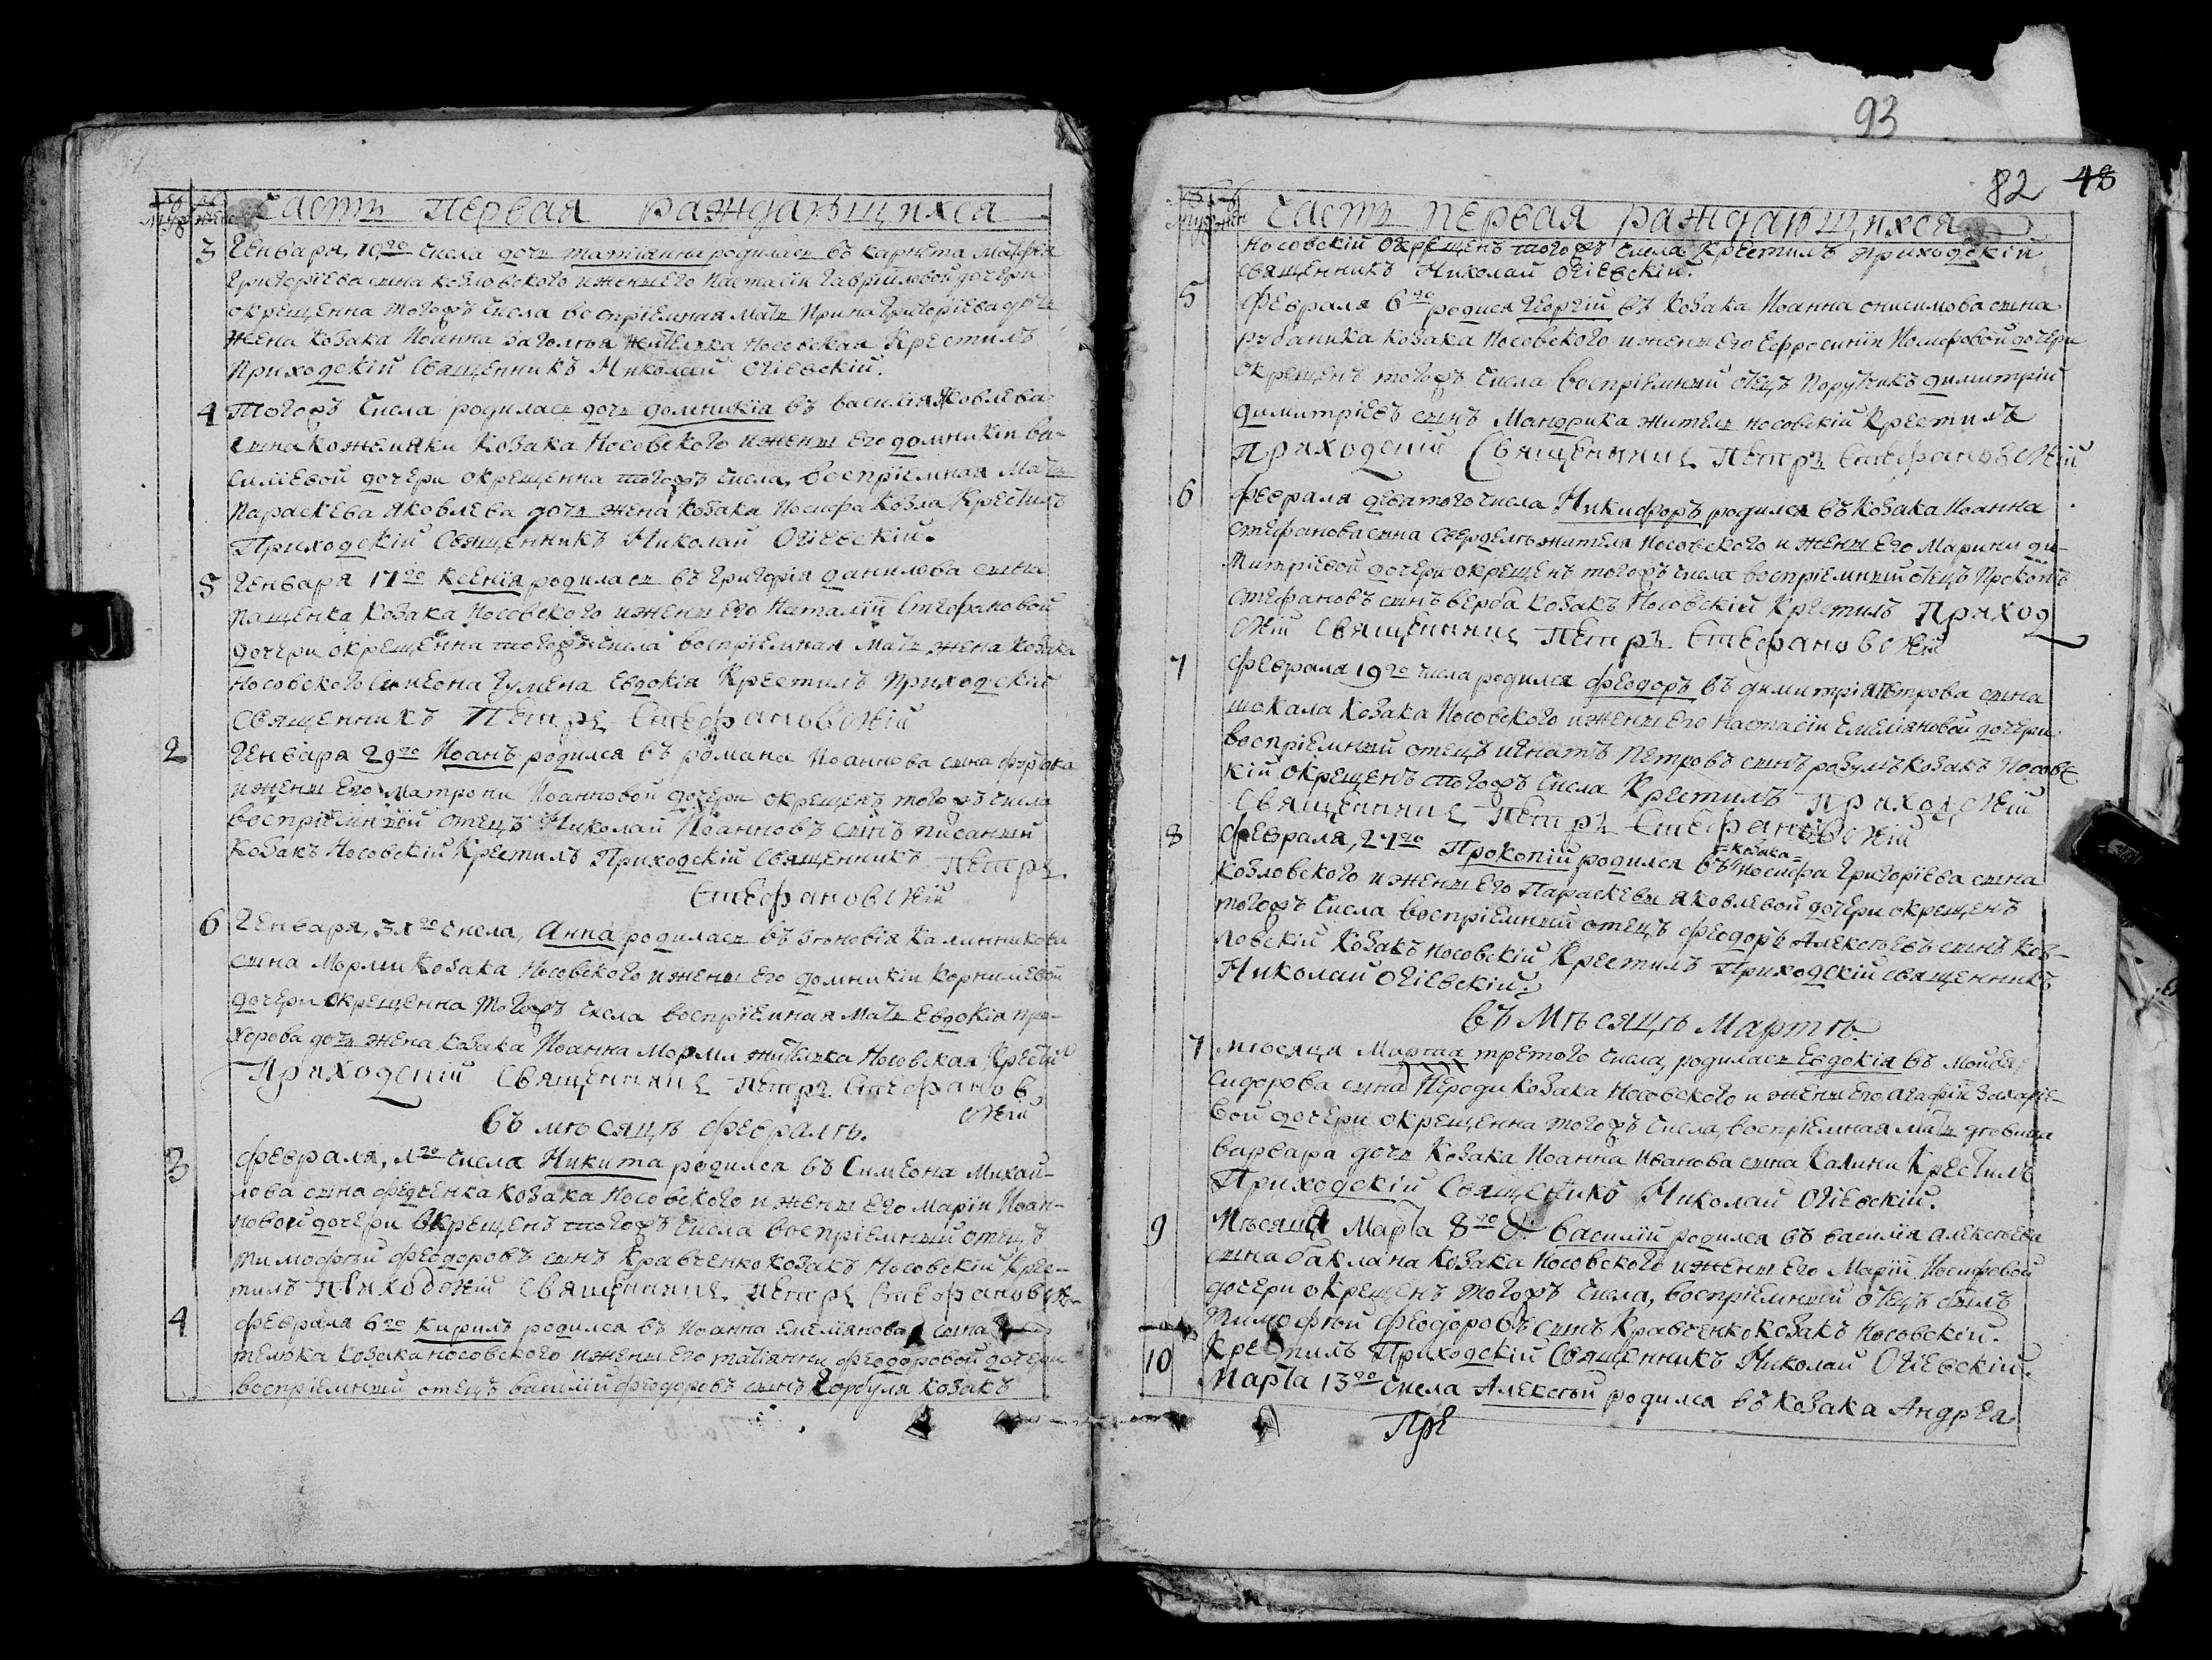 93
82 48
Часть первая раждающихся
3 Генваря, 19го числа дочь татіанна родилась въ карпета Матфея
Григоріева сина козловского и жены его Настасіи Гавріиловой дочери
окрещенна тогожъ числа воспріемная Мать Ирина Григоріева дочь
жена козака Иоанна жителка Носовская Крестилъ
Приходскій Священникъ Николай Огіевскій.
4 Тогожъ числа родилась дочь домникіа въ василія Яковлева
сина кожемяки козака Носовского и жены его домникіи ва-
силіевой дочери окрещенна тогожъ числа, воспріемная Мать
Параскева Яковлева дочь жена козака Иосифа козла Крестилъ
Приходскій Священникъ Николай Огіевскій.
5 Генваря 17го Ксенія родилась въ Григорія данилова сина
пащенка козака Носовского и жены его Наталіи Стефановой
дочери окрещенна тогожъ числа воспріемная Мать жена козака
носовского Симеона Гумена Евдокія Крестилъ Приходскій
священникъ Петръ Стефановскій
2 Генваря 29го Иоанъ родился въ романа Иоаннова сина
и жены его Матрони Иоанновой дочери окрещенъ тогожъ числа
воспріемний отецъ Николай Иоанновъ синъ писаний
козакъ Носовскій Крестилъ Приходскій Священникъ Петръ
Стефановскій
6 Генваря, 3Хго числа, Анна родилась въ Зѣновія Калинникова
сина Морми козака Носовского и жены его домникіи Корнилиевой
дочери окрещенна тогожъ числа воспріемная Мать Евдокіа про-
хорова дочь жена козака Иоанна Морми жителка Носовская Крестил
Приходскій Священникъ Петръ Стефанов
скій
въ мѣсяцѣ февралѣ.
3 февраля, лго числа Никита родился въ Симеона Михай-
лова сина федченка козака Носовского и жены его Маріи Иоан-
новой дочери окрещенъ тогожъ числа воспріемний отецъ
тимофѣй Феодоровъ синъ Кравченко козакъ Носовскій Крес-
тилъ Приходскій Священникъ Петръ Стефановск
4 февраля 6го Кирилъ родился въ Иоанна Емелянова сина
телюка козака носовского и жены его татіанни феодоровой дочери
воспріемний отецъ василій феодоровъ синъ Горбуля козакъ
Часть первая раждающихся
носовскій окрещенъ тогожъ числа Крестилъ приходскій
священникъ Николай Огіевскій.
5 Февраля 6го родися Георгій въ козака Иоанна онисимова сина
рубаника козака Носовского и жены его Ефросиніи Иосифовой дочери
окрещенъ тогожъ числа воспріемний отецъ Поручикъ димитрій
димитріевъ синъ Мандрика житель носовскій Крестилъ
Приходскій Священникъ Петръ Стефановскій
6 февраля девятого числа Никифоръ родился въ козака Иоанна
стефанова сина жителя Носовского и жены его Марини ди-
митріевой дочери окрещенъ тогожъ числа воспріемний отецъ Прокопъ
стефановъ синъ верба козакъ Носовскій Крестилъ Приход
скій Священникъ Петръ Стефановскій
7 февраля 19го числа родился феодоръ въ димитрія петрова сина
шокала козака Носовского и жены его настасіи Емеліяновой дочери
воспріемний отецъ игнатъ Петровъ синъ розумъ козакъ Носовс
кій окрещенъ тогожъ числа Крестилъ Приходскій
Священникъ Петръ Стефановскій
8 февраля, 27го Прокопій родился въ козака Иосифа Григоріева сина
козловского и жены его Параскеви Яковлевой дочери окрещенъ
тогожъ числа воспріемний отецъ феодоръ Алексѣевъ синъ коз-
ловскій козакъ носовскій Крестилъ Приходскій священникъ
Николай Огіевскій.
въ Мѣсяцѣ Мартѣ
7 мѣсяця Марта третого числа, родилась Евдокія въ Моисея
Сидорова сина Нероди козака Носовского и жены его агафіи Захаріе-
вой дочери окрещенна тогожъ числа, воспріемная мать девица
варвара дочь козака Иоанна Иванова сина Калини Крестилъ
Приходскій Священикъ Николай Огіевскій.
9 Мѣсяця Марта 8го василій родился въ василія алексѣева
сина баклана козака носовского и жены его Маріи Иосифовой
дочери окрещенъ тогожъ числа, воспріемний отецъ билъ
тимофѣй Феодоровъ синъ Кравченко козакъ носовскій.
Крестилъ Приходскій Священникъ Николай Огіевскій.
10 Марта 13го числа Алексѣй родился въ козака Андреа
Пре